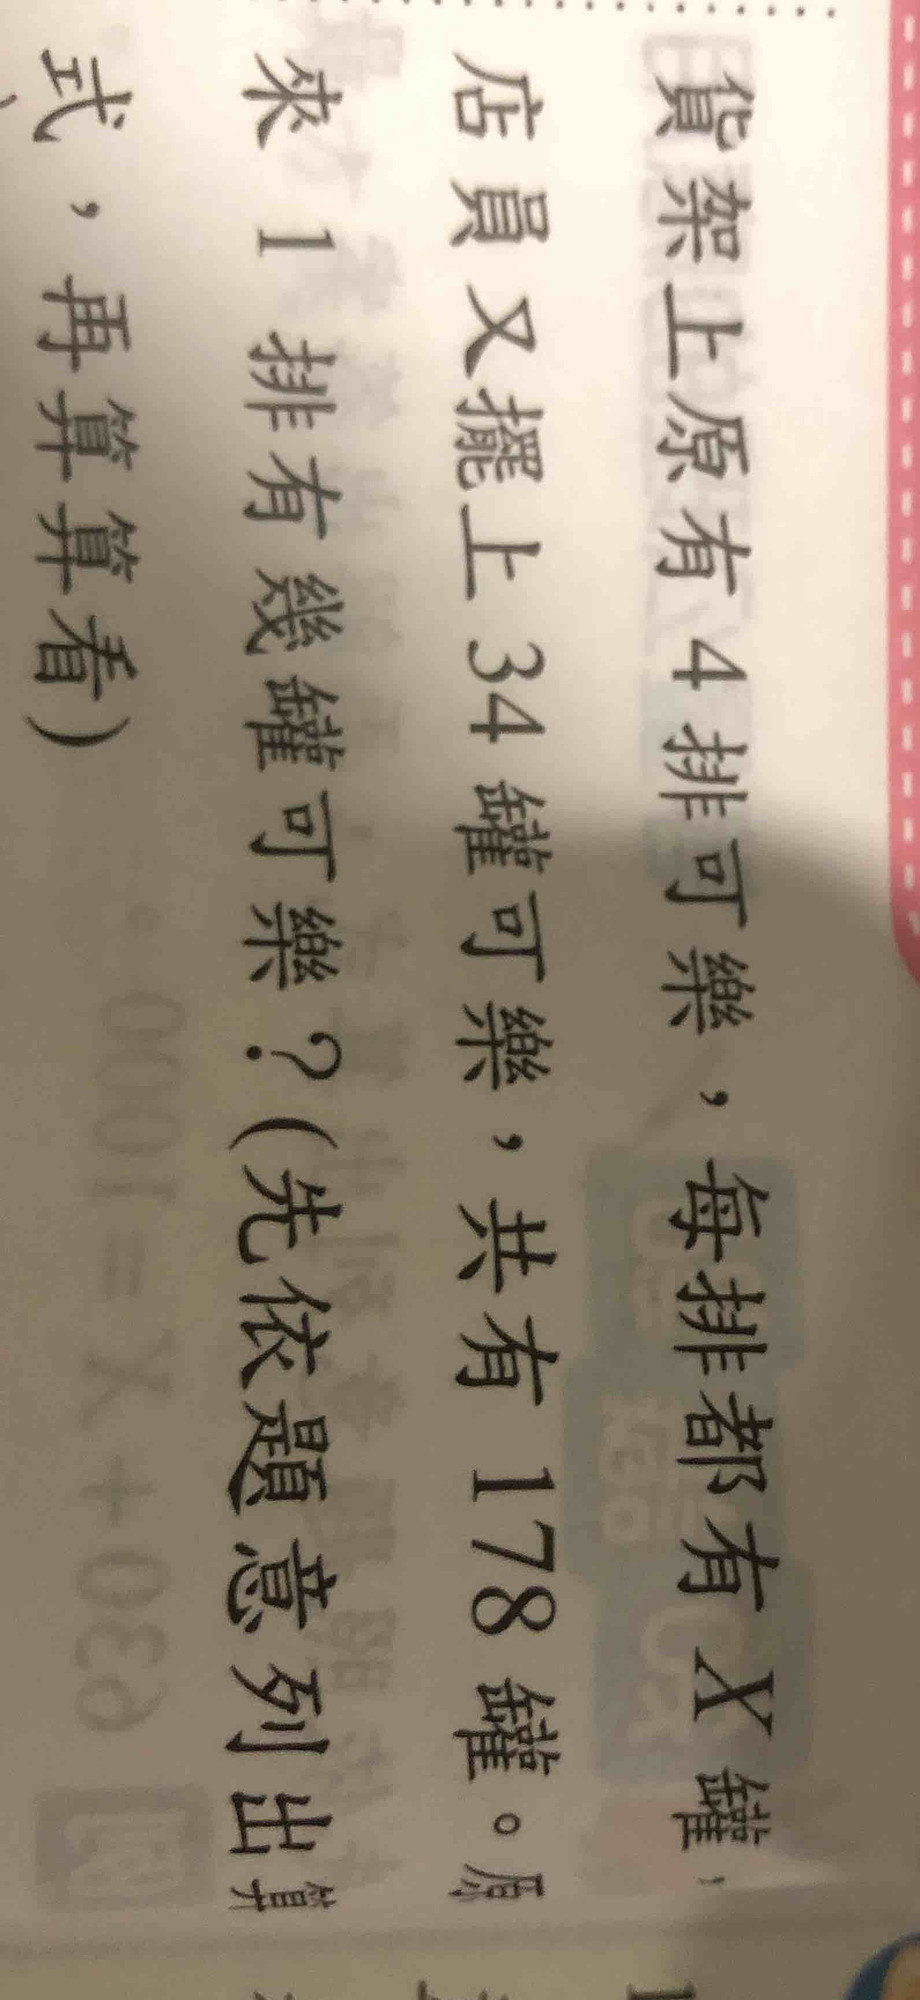 貨架上原有4排可樂，每排都有X罐，
店員又擺上34罐可樂，共有178罐。原
來1排有幾罐可樂？(先依題意列出算
式，再算算看)
630+X=1000。